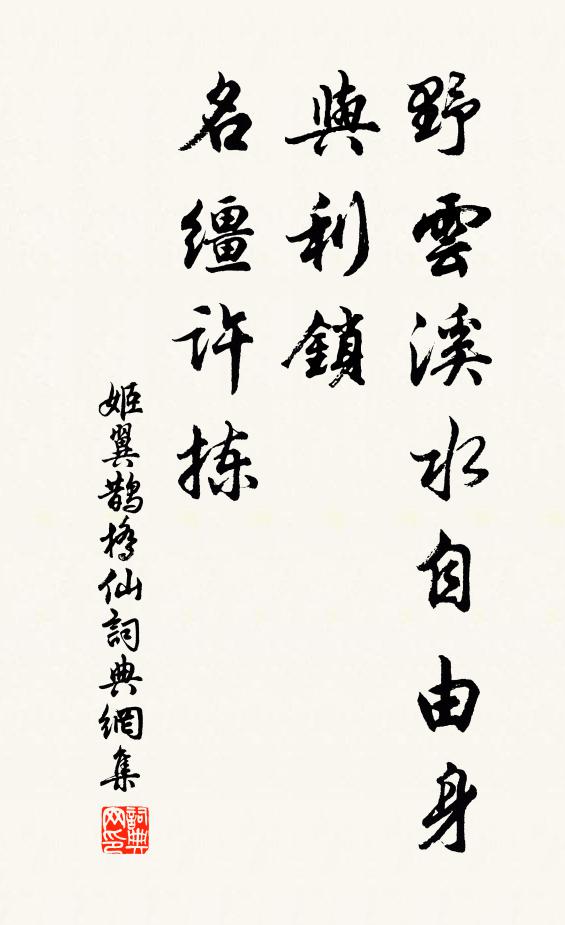 野雲溪水自由身
與利鎖
名繮許拣
姬翼鵲橋仙詞典網集
詞典网印